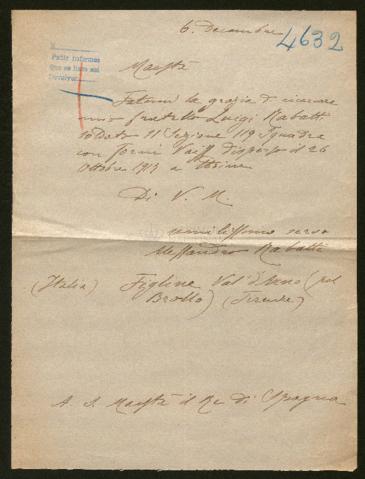 6. Decembre
4632
Pedir informes
Que se hizo así
Devolver
Maestà
Fatemi la grazia di ricercare
mio fratello Luigi Rabatti
11 Sezione 119 Squadra
con disperso il 26
Ottobre a Udine
Di V. M.
umilissimo servo
Alessandro Rabatti
(Italia) Figline Val d'Arno (nel
Brollo) (Firenze)
A. S. Maestà il Re di Spagna